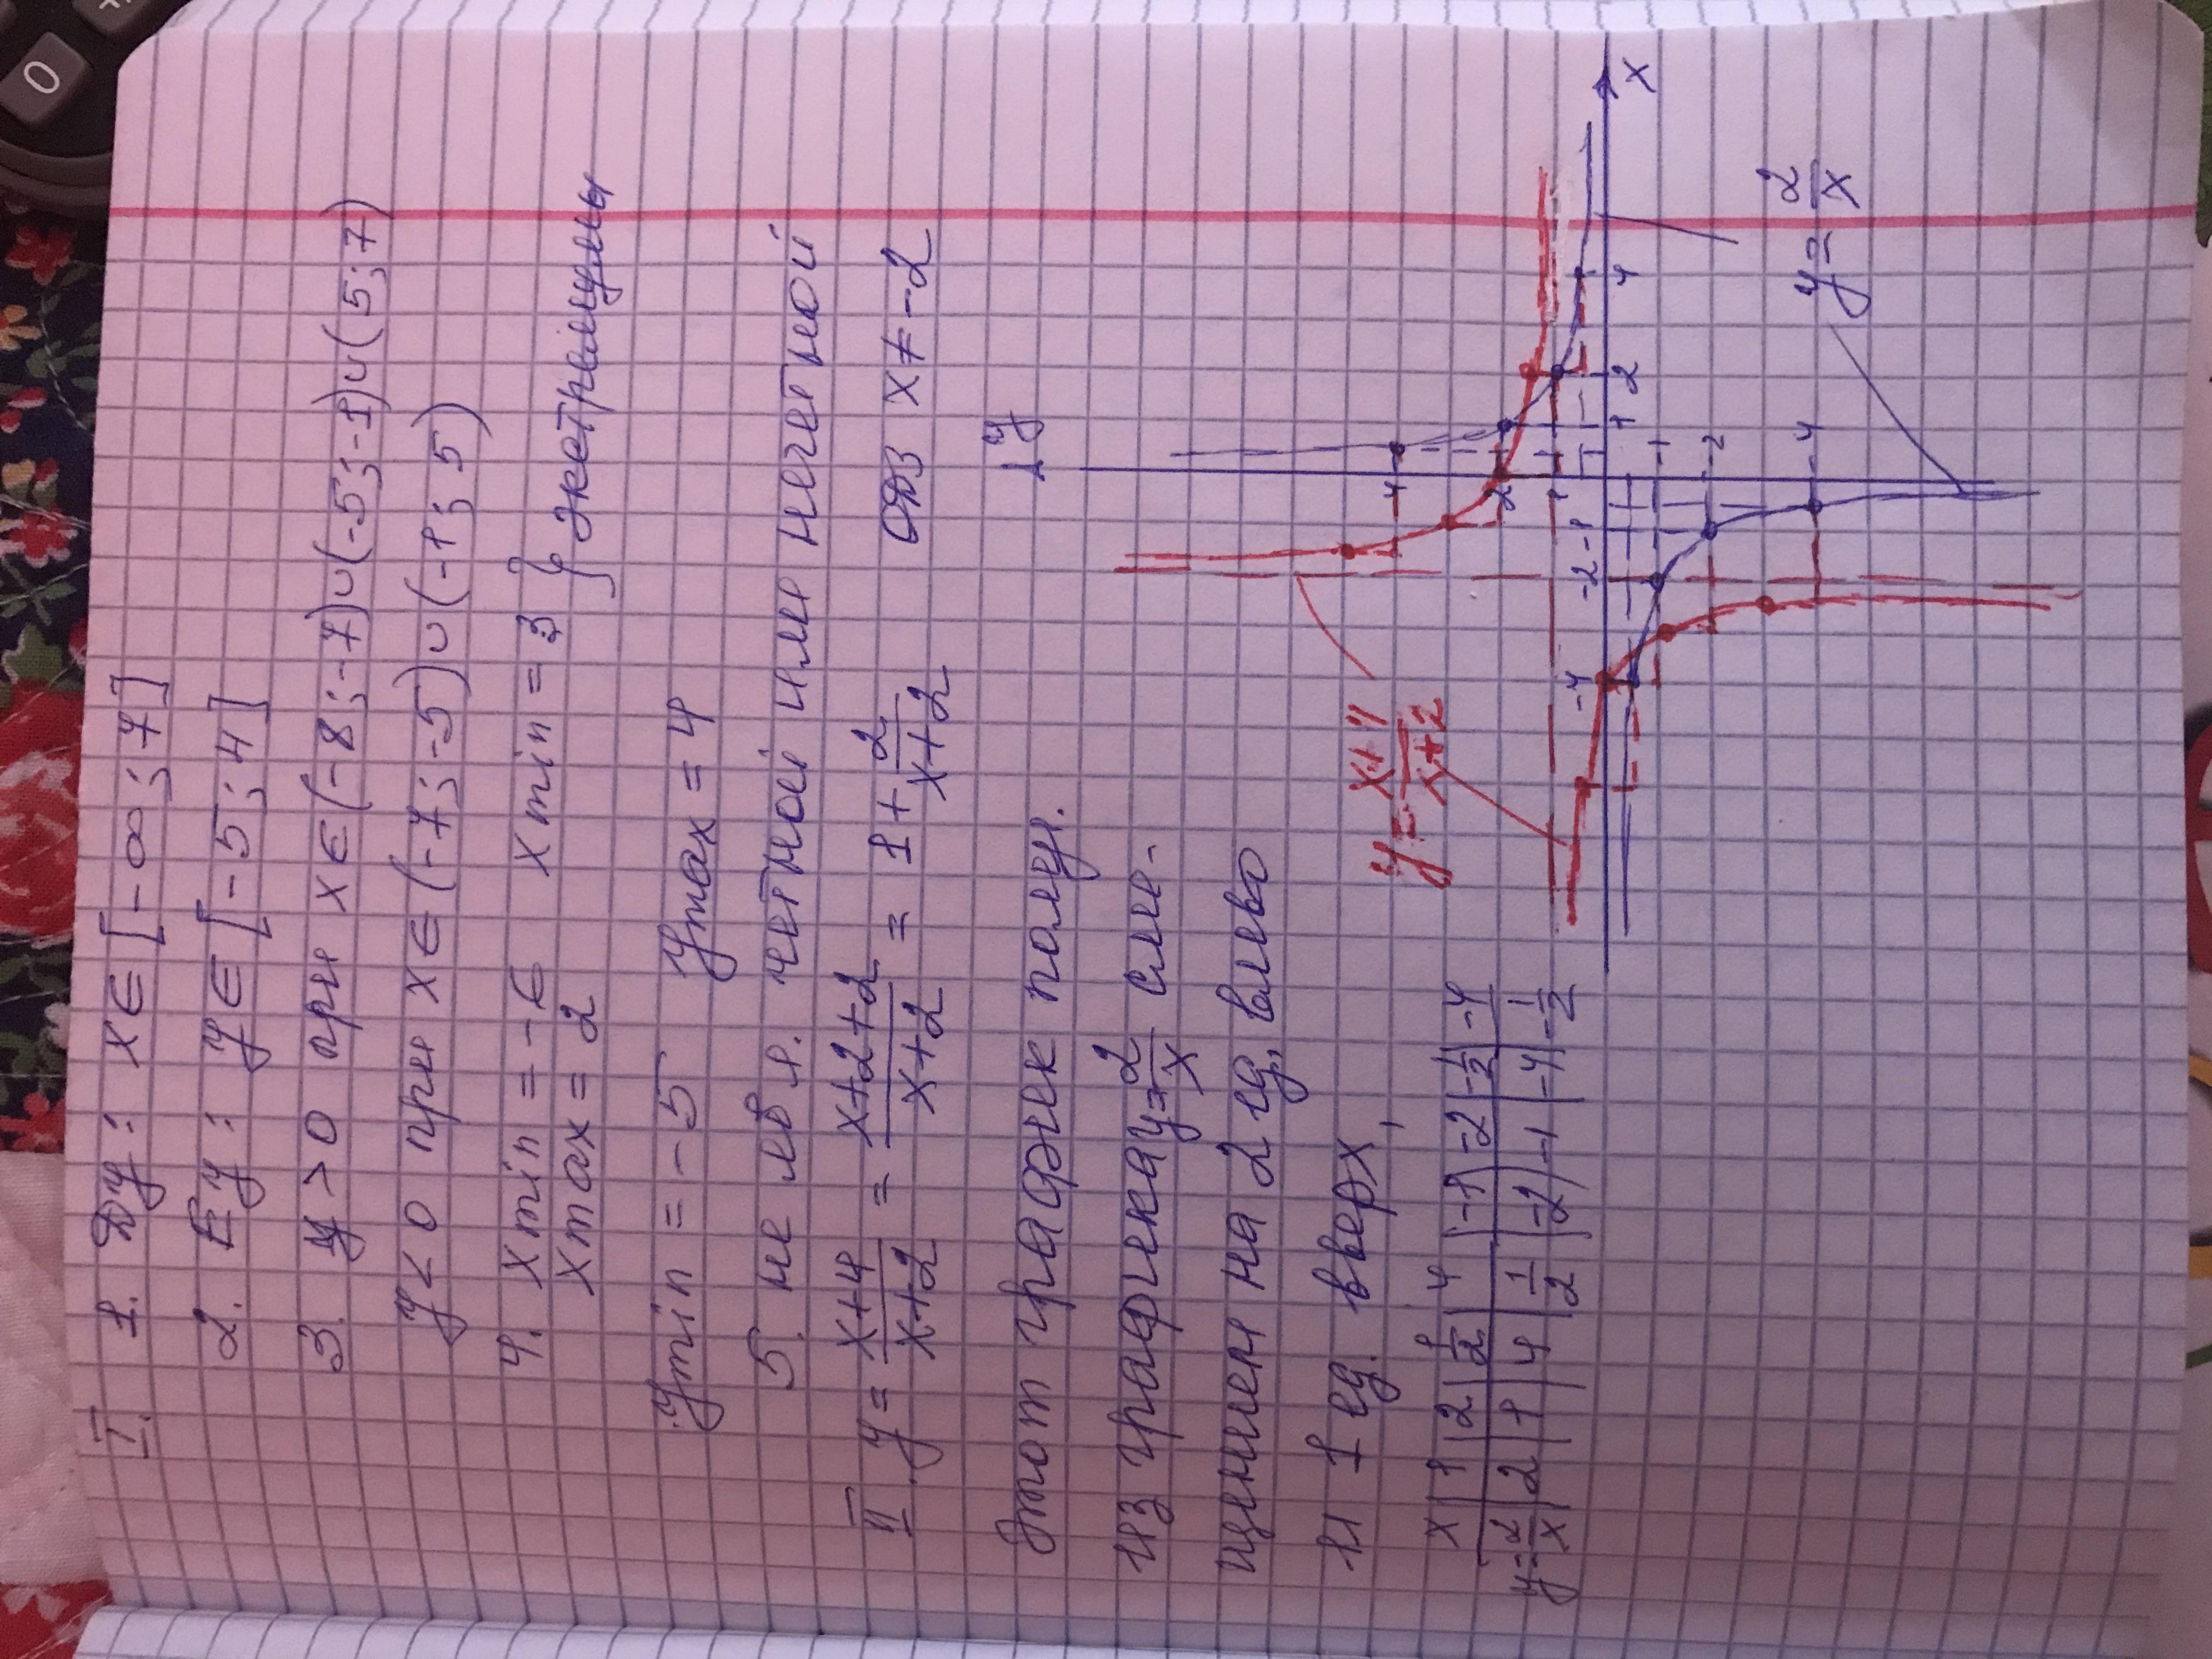 I. 1. Dy: x ∈ [-∞; 7]
2. Ey: y ∈ [-5; 4]
3. y > 0 при x ∈ (-8; -7) ∪ (-5; -1) ∪ (5; 7)
y < 0 при x ∈ (-7; -5) ∪ (-1; 5)
4. xmin = -6 xmin = 3 } экстремумы
xmax = 2
ymin = -5 ymax = 4
5. не явл. четной или нечетной
II. y = \frac{x+4}{x+2} = \frac{x+2+2}{x+2} = 1 + \frac{2}{x+2} ОДЗ x ≠ -2
Этот график получ.
из графика y = \frac{2}{x} сме-
щением на 2 ед. влево
и 1 ед. вверх,
x | 1 | 2 | \frac{1}{2} | 4 | -1 | -2 | -\frac{1}{2} | -4
y = \frac{2}{x} | 2 | 1 | 4 | \frac{1}{2} | -2 | -1 | -4 | -\frac{1}{2}
y
4
2
1
-4 -2 -1 1 2 4 x
-1
-2
-4
y = \frac{x+4}{x+2}
y = \frac{2}{x}
0